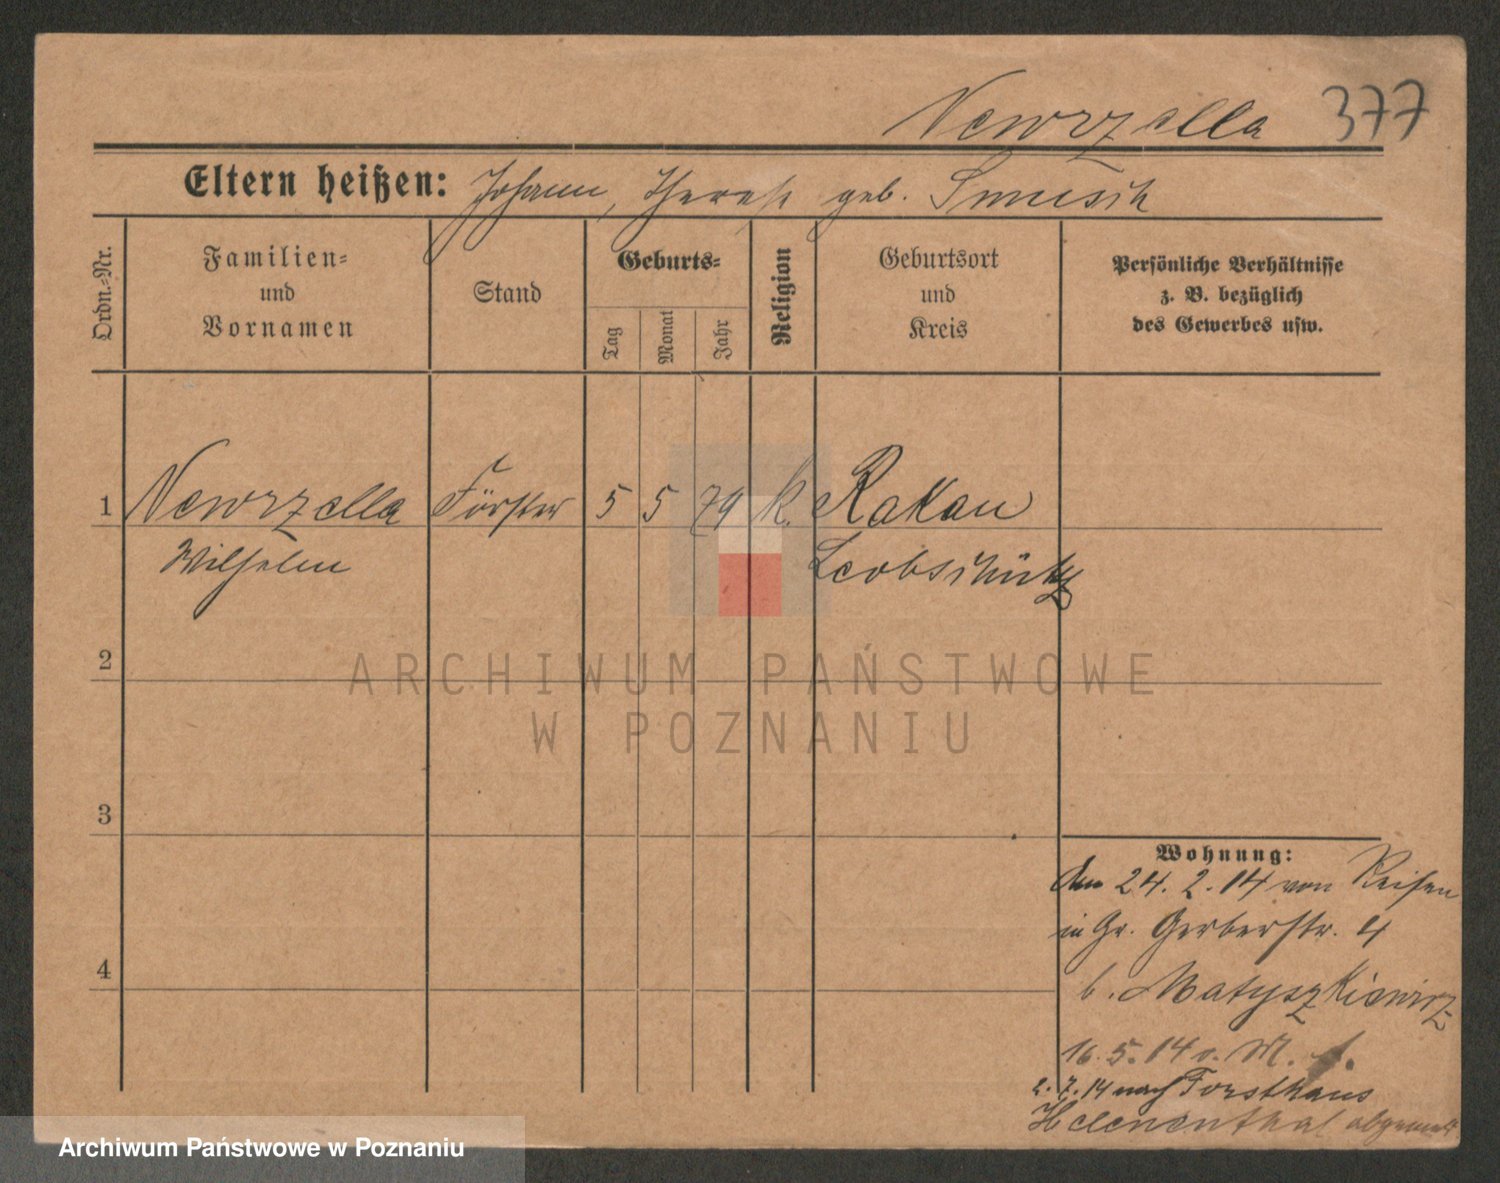 Newrzella 377
Eltern heißen: Johann, Therese geb.
Ordn.-Nr.
Familien- und Vornamen
Stand
Geburts-
Tag
Monat
Jahr
Religion
Geburtsort und Kreis
Persönliche Verhältnisse
z. B. bezüglich
des Gewerbes usw.
1 Newrzella Förster 5 5 79 k. Rakau
Wilhelm Leobschütz
2
3
4
Wohnung:
den 24. 2. 14 von Reisen
in Gr. Gerberstr. 4
b. Matyszkiewicz
16. 5. 14 v. M.
2. 7. 14 nach Forsthaus
Helenenthal
ARCHIWUM PAŃSTWOWE
W POZNANIU
Archiwum Państwowe w Poznaniu